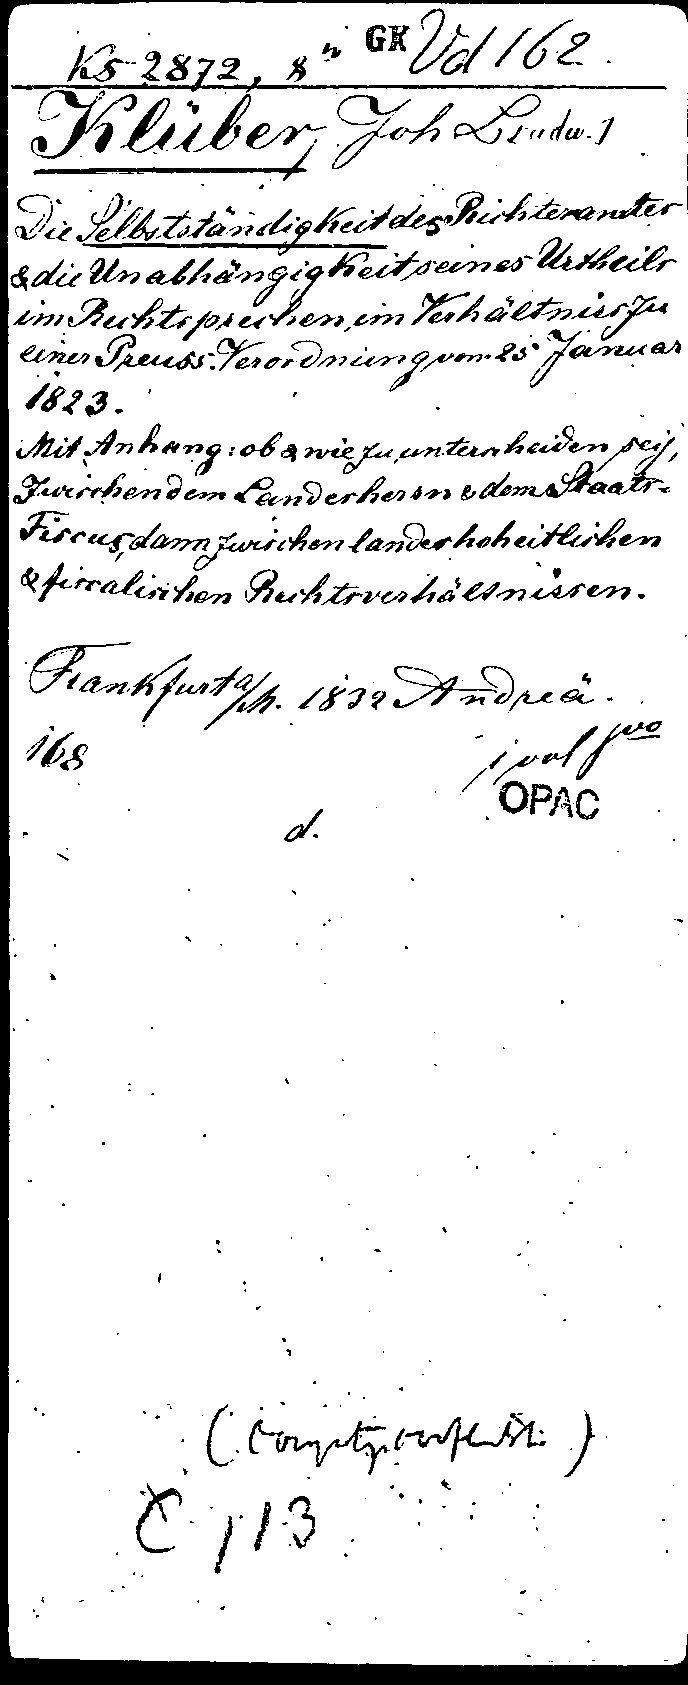 Ks 2872, 8" GK Vd 162.
Klüber, Joh Ludw.
Die Selbstständigkeit des Richteramtes
& die Unabhängigkeit seines Urtheils
im Rechtsprechen, im Verhältniss zu
einer Preuss. Verordnung vom 25 Januar
1823.
Mit Anhang: ob & wie zu unterscheiden sey,
zwischen dem Landesherrn & dem Staats-
Fiscus, dann zwischen landeshoheitlichen
& fiscalischen Rechtsverhältnissen.
Frankfurt a/M. 1832 Andreä.
168
1 vol 8vo
OPAC
d.
C 113